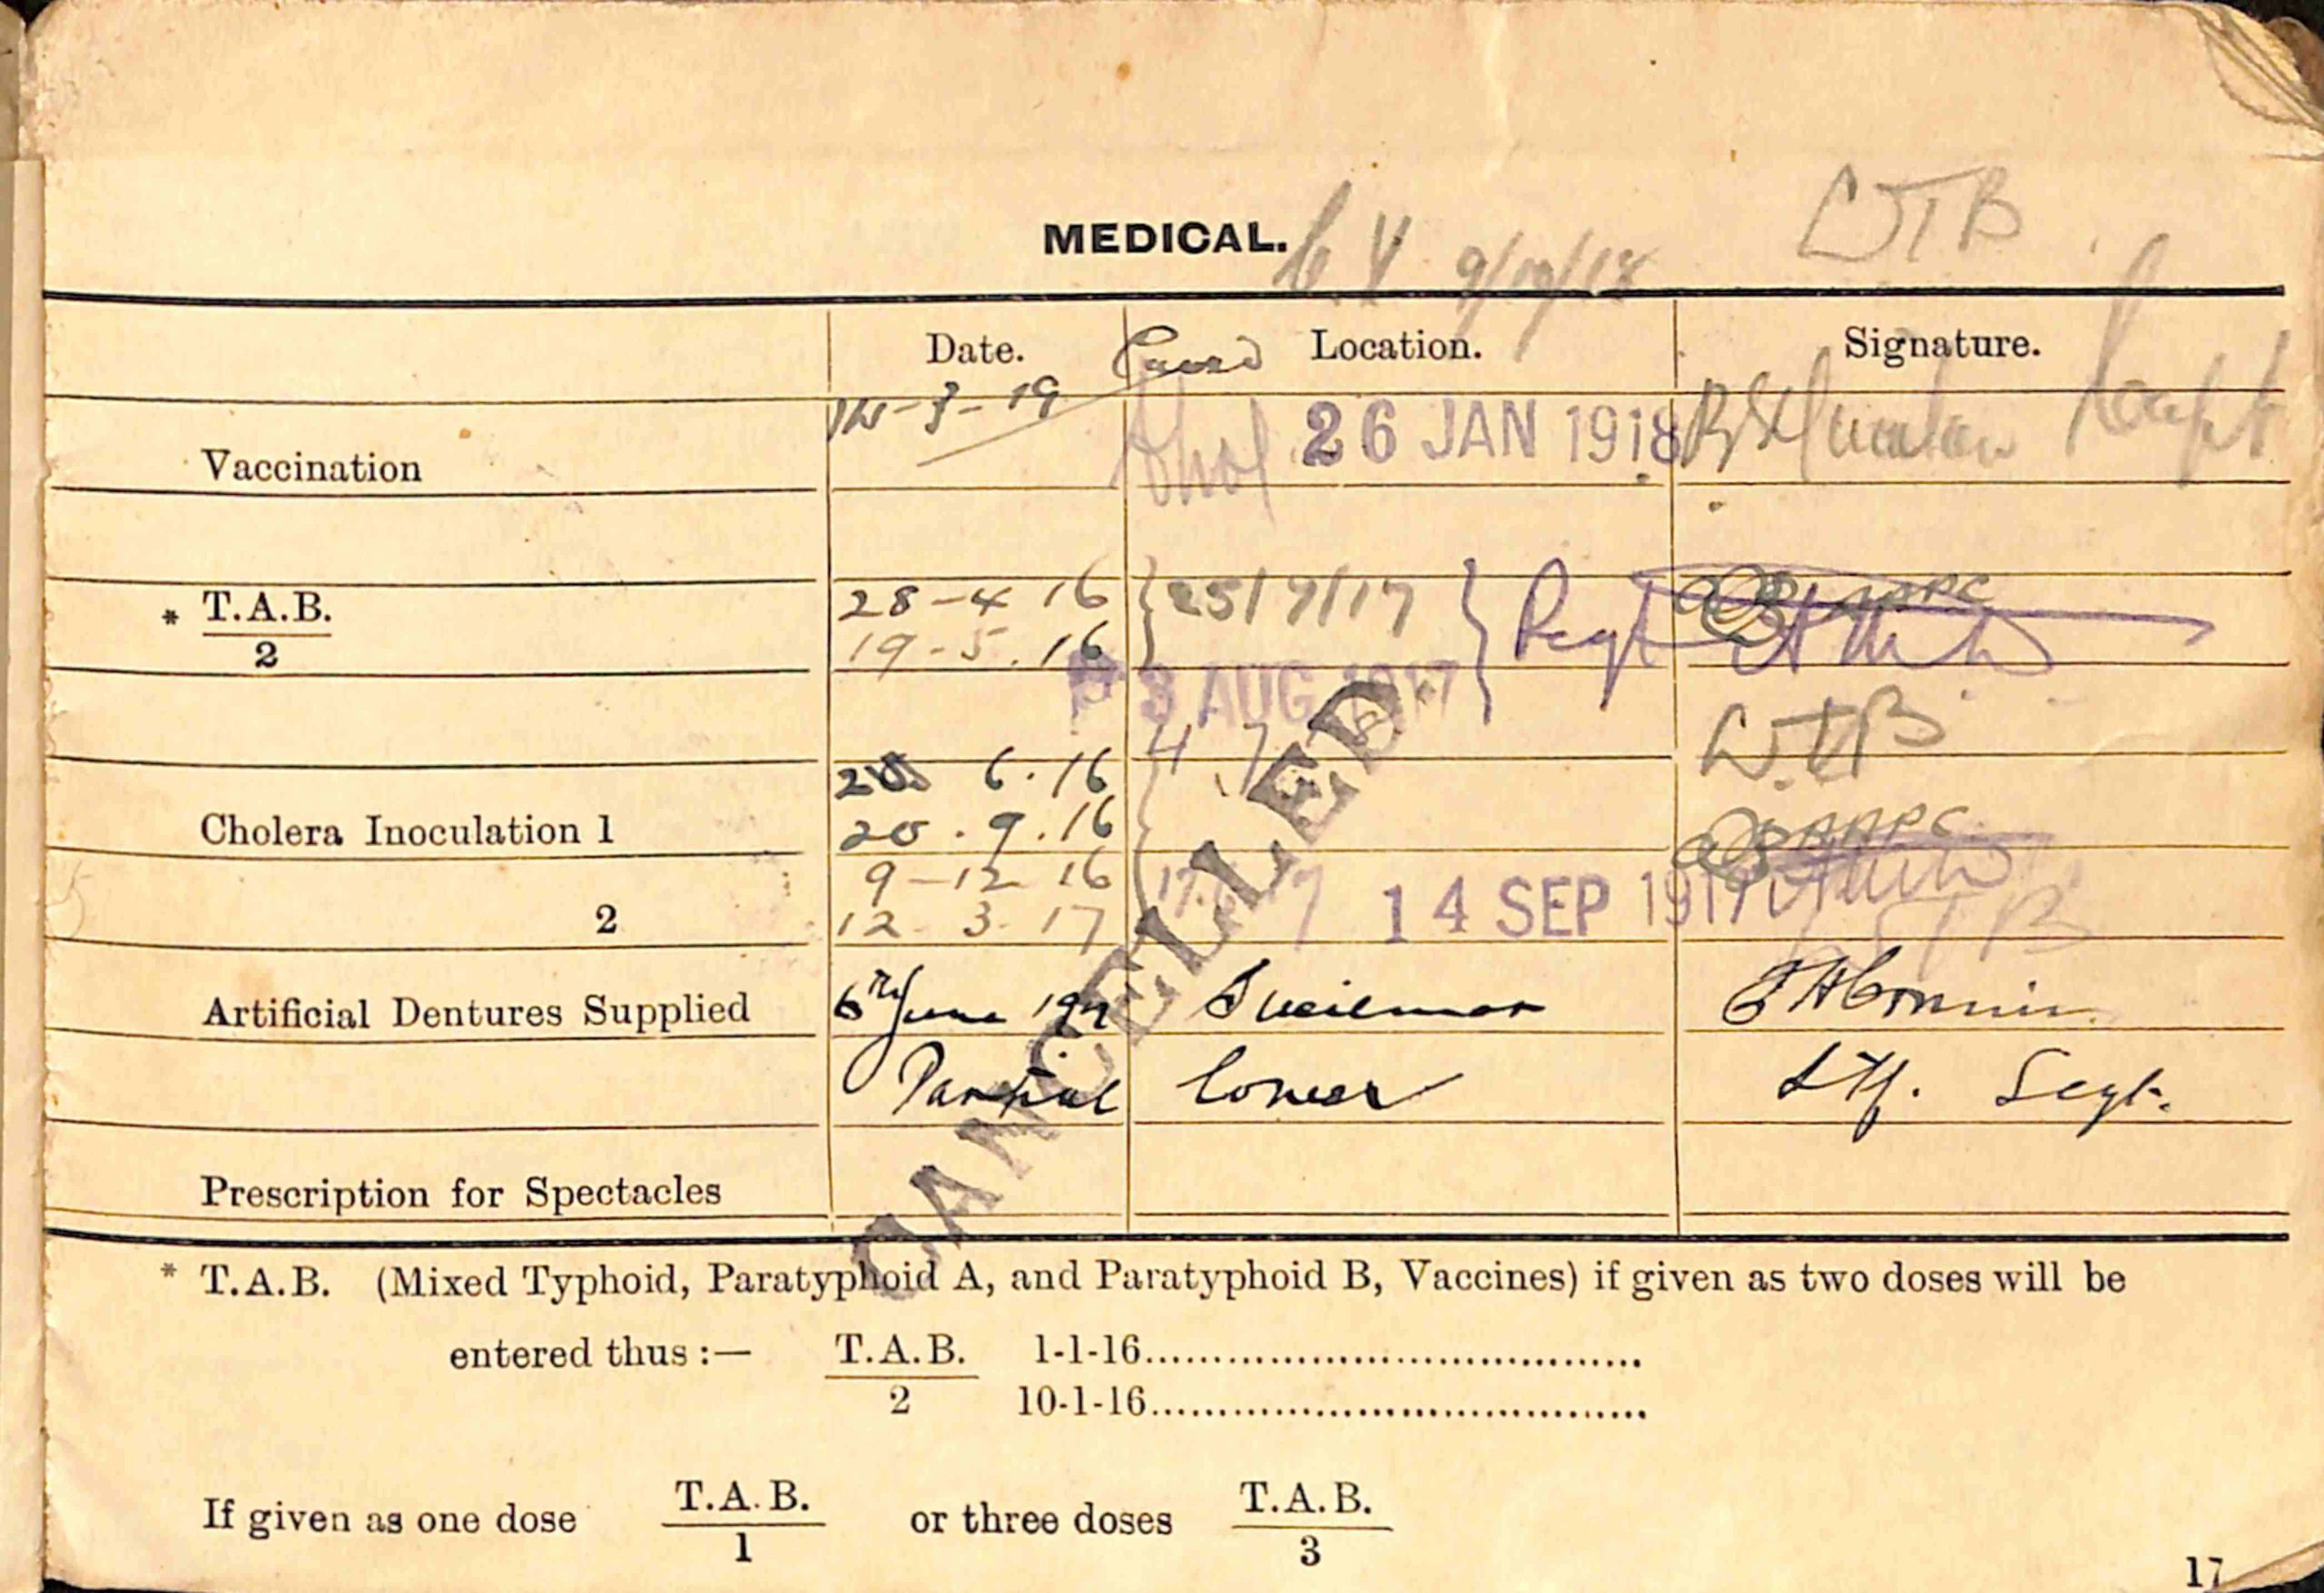 MEDICAL.
WTB
Date. Location. Signature.
Vaccination 26 JAN 1918 Capt
* T.A.B. 28-4 16 25/7/17
2 19-5.16
3 AUG 1917
W.T.B
6.16
Cholera Inoculation 1 20.9.16
9-12 16
2 12-3-17 14 SEP 1917
CANCELLED
Artificial Dentures Supplied 6th June
Partial lower Stf. Segt.
Prescription for Spectacles
* T.A.B. (Mixed Typhoid, Paratyphoid A, and Paratyphoid B, Vaccines) if given as two doses will be
entered thus :— T.A.B. 1-1-16
2 10-1-16
If given as one dose T.A.B. or three doses T.A.B.
1 3
17